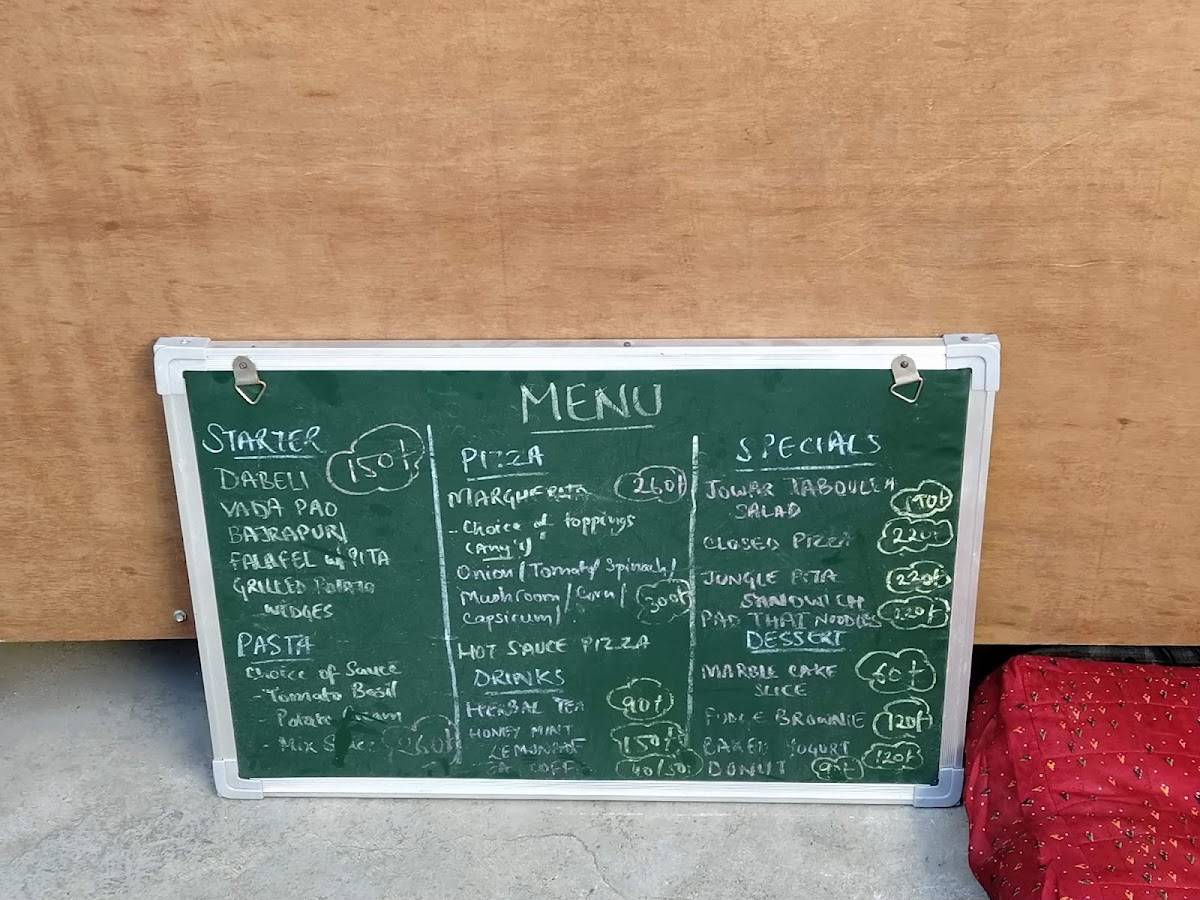 MENU
STARTER
150/-
DABELI
VADA PAO
BAJRAPURI
FALAFEL w/ PITA
GRILLED POTATO
WEDGES
PASTA
Choice of Sauce
- Tomato Basil
- Potato Cream
- Mix Sauce 260/-
PIZZA
MARGHERITA 260/-
- Choice of toppings
(any 1)
Onion/Tomato/Spinach/
Mushroom/Corn/ 300/-
Capsicum/
HOT SAUCE PIZZA
DRINKS
HERBAL TEA 90/-
HONEY MINT
LEMONADE 150/-
40/50/-
SPECIALS
JOWAR TABOULEH
SALAD 190/-
CLOSED PIZZA 220/-
JUNGLE PITA 220/-
SANDWICH
PAD THAI NOODLES 220/-
DESSERT
MARBLE CAKE 60/-
SLICE
FUDGE BROWNIE 120/-
BAKED YOGURT 120/-
DONUT 90/-